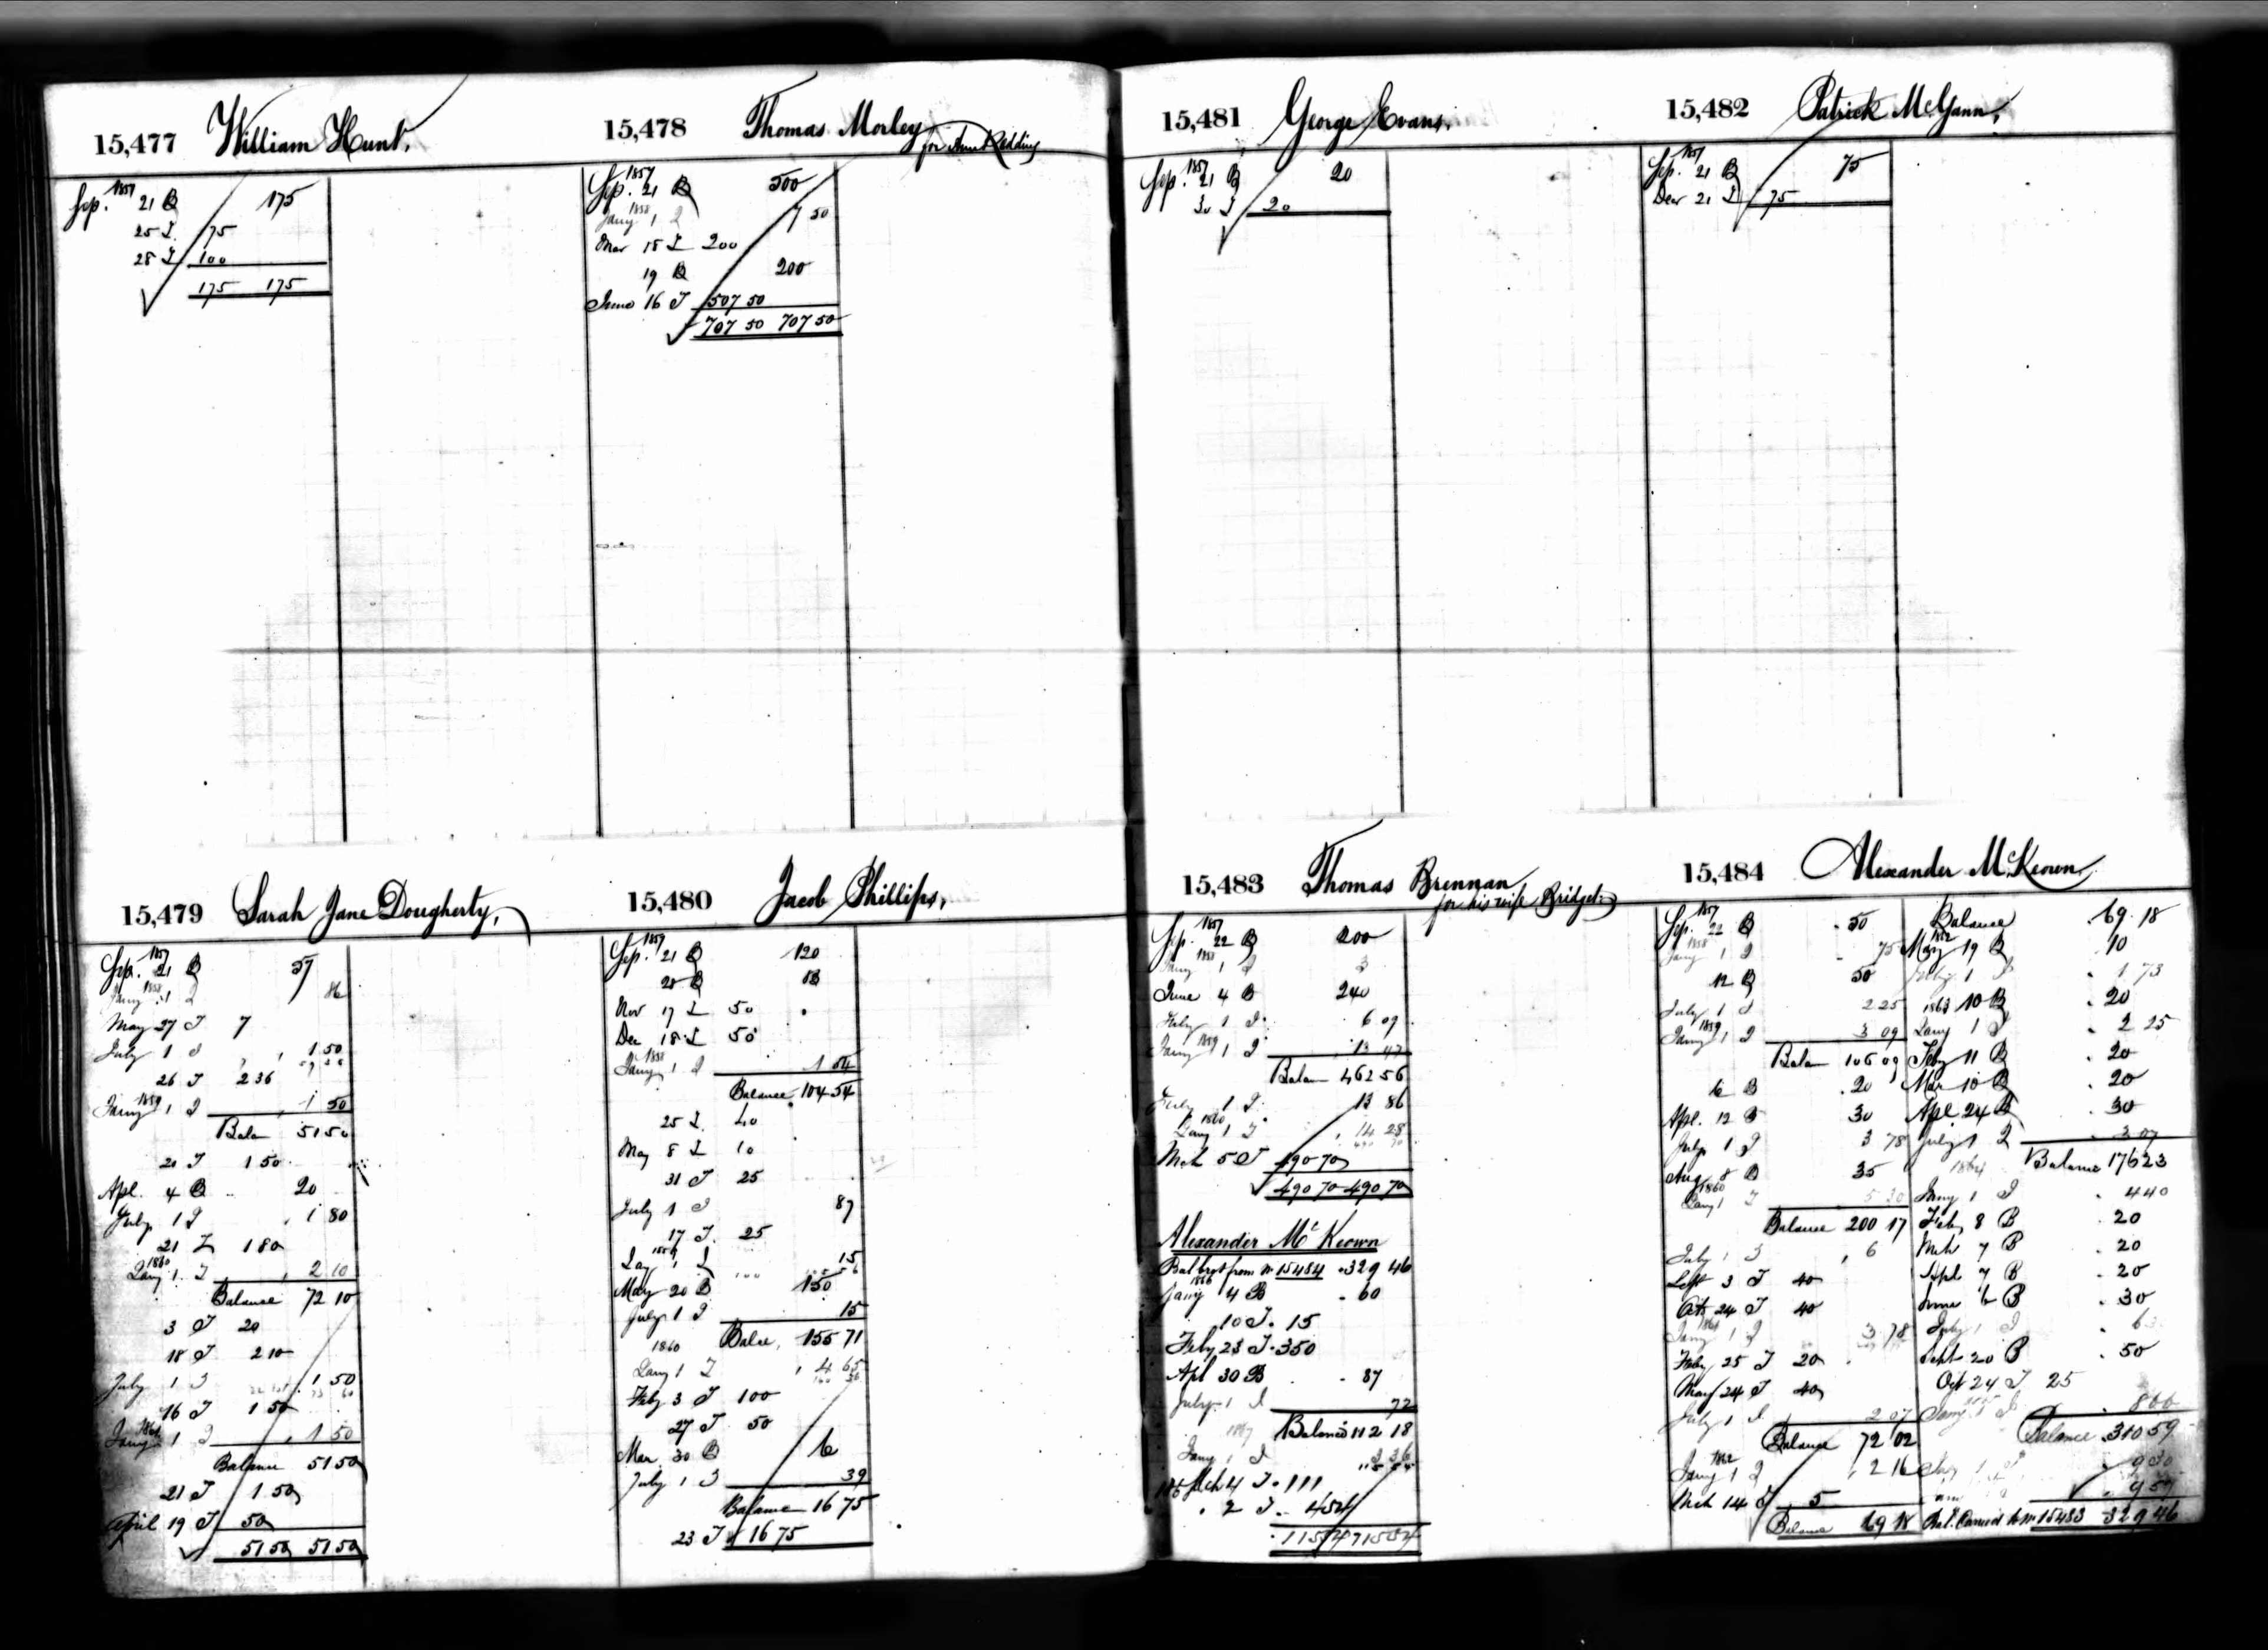 15,477 William Hunt.
1857
Sep. 21 B 175
25 T 75
28 T 100
175 175
15,478 Thomas Morley
for Ann Redding
1857
Sep. 21 B 500
1858
Jany 1 I 7 50
Mar 18 T 200
19 B 200
June 16 T 507 50
707 50 707 50
15,479 Sarah Jane Dougherty,
1857
Sep. 21 B 57
1858
Jany 1 I 86
May 27 T 7
July 1 I 1 50
26 T 2 36
1859
Jany 1 I 1 50
Balan 51 50
21 T 1 50
Apl. 4 B 20
July 1 I 1 80
21 T 1 80
1860
Jany 1 I 2 10
Balance 72 10
3 T 20
18 T 2 10
July 1 I 1 50
16 T 1 50
1861
Jany 1 I 1 50
Balance 51 50
21 T 1 50
April 19 T 50
51 50 51 50
15,480 Jacob Phillips,
1857
Sep. 21 B 120
28 B 83
Nov 17 T 50
Dec 18 T 50
1858
Jany 1 I 1 54
Balance 104 54
25 T 40
May 8 T 10
31 T 25
July 1 I 87
17 T 25
1859
Jany 1 I 15
May 20 B 150
July 1 I 15
1860 Balce, 155 71
Jany 1 I 4 65
Feby 3 T 100
27 T 50
Mar 30 B 6
July 1 I 39
Balance 16 75
23 T 16 75
15,481 George Evans,
1857
Sep. 21 B 20
30 T 20
15,482 Patrick McGann,
1857
Sep. 21 B 75
Decr 21 T 75
15,483 Thomas Brennan
for his wife Bridget
1857
Sep. 22 B 200
1858
Jany 1 I 3
June 4 B 240
July 1 I 6 09
1859
Jany 1 I 13 47
Balan 462 56
July 1 I 13 86
1860
Jany 1 I 14 28
Mch 5 T 490 70
490 70 490 70
Alexander McKeown
Bal brot from No 15484 329 46
1866
Jany 4 B 60
10 T 15
Feby 23 T 350
Apl 30 B 87
July 1 I 72
Balance 112 18
1867
Jany 1 I 3 36
Mch 4 T 111
2 T 4 54
115 54 115 54
15,484 Alexander McKeown
1857
Sep. 22 B 50
1858
Jany 1 I 75
12 B 50
July 1 I 2 25
1859
Jany 1 I 3 09
Balan 106 09
6 B 20
Apl. 12 B 30
July 1 I 3 78
Aug 8 B 35
1860
Jany 1 I 5 30
Balance 200 17
July 1 I 6
Sept 3 T 40
Oct 24 T 40
1861
Jany 1 I 3 78
Feby 25 T 20
May 24 T 40
July 1 I 2 07
Balance 72 02
1862
Jany 1 I 2 16
Mch 14 T 5
Balance 69 18
Balance 69 18
1862
May 19 B 10
July 1 I 1 73
10 B 20
1863
Jany 1 I 2 25
Feby 11 B 20
Mar 10 B 20
Apl. 24 B 30
July 1 I 3 07
1864 Balance 176 23
Jany 1 I 4 40
Feby 8 B 20
Mch 7 B 20
Apl 7 B 20
June 6 B 30
July 1 I 6
Sept 20 B 50
Oct 24 T 25
Jany 1 I 8 66
Balance 310 59
9 30
9 57
Bal. Carried to No 15483 329 46